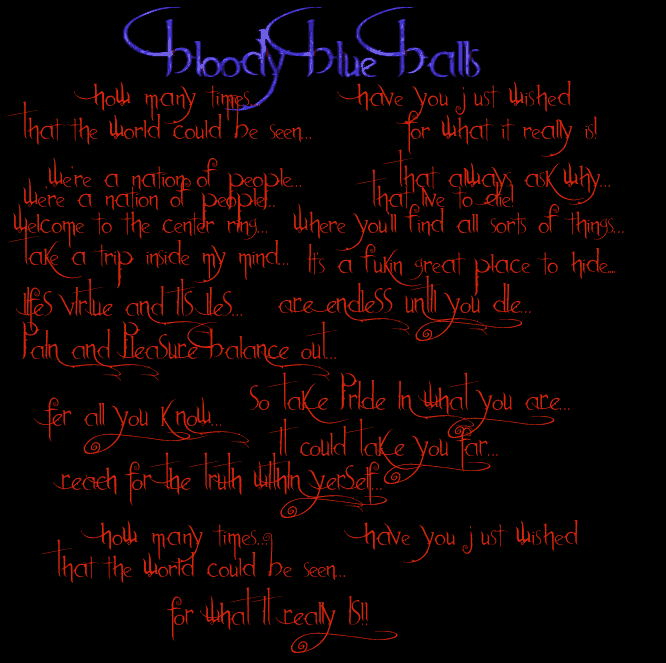 Bloody Blue Balls
how many times have you just wished
that the world could be seen... for what it really is!
we're a nation of people... that always ask why...
we're a nation of people... that live to die!
welcome to the center ring... where you'll find all sorts of things...
take a trip inside my mind... It's a fukin great place to hide...
lifes virtue and its lies... are endless until you die...
Pain and Pleasure balance out...
fer all you know... So take Pride in what you are...
it could take you far...
reach for the truth within yerself...
how many times... have you just wished
that the world could be seen...
for what it really IS!!